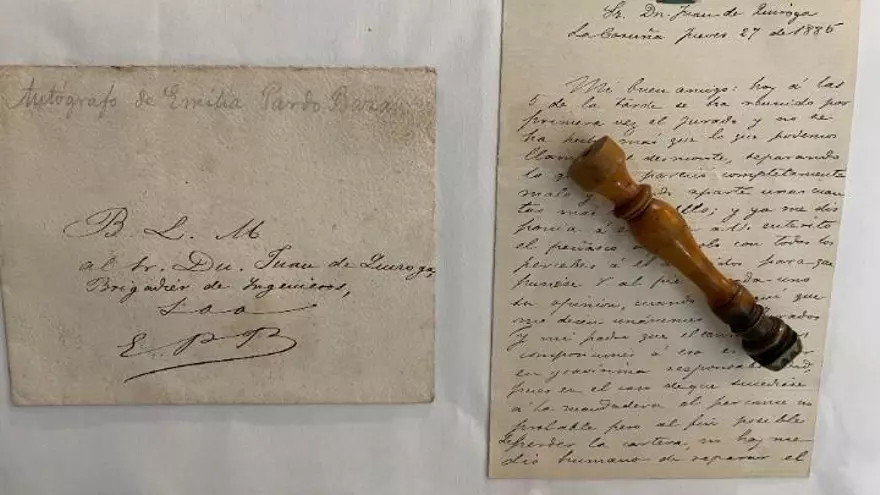 Autógrafo de Emilia Pardo Bazán
B. L. M
al Sr. Dn. Juan de Quiroga,
Brigadier de Ingenieros,
E P B
Sr. Dn. Juan de Quiroga
La Coruña Jueves 27 de 1885
Mi buen amigo: hoy á las
5 de la tarde se ha reunido por
primera vez el Jurado y no se
ha hecho mas que lo que podemos
llamar desmonte, separando
lo parecia completamente
malo y aparte unas cuan
tas mas ; y ya me dis
ponia á enterito
el con todos los
percales á el para que
pusiese al pie cada uno
su opinion, cuando que
me dicen unánimes
y mi padre que el
composiciones á esa es
en gravísima
pues en el caso de que sucediese
á la mandadera el percance no
probable pero al fin posible
de perder la cartera, no hay me
dio humano de reparar el